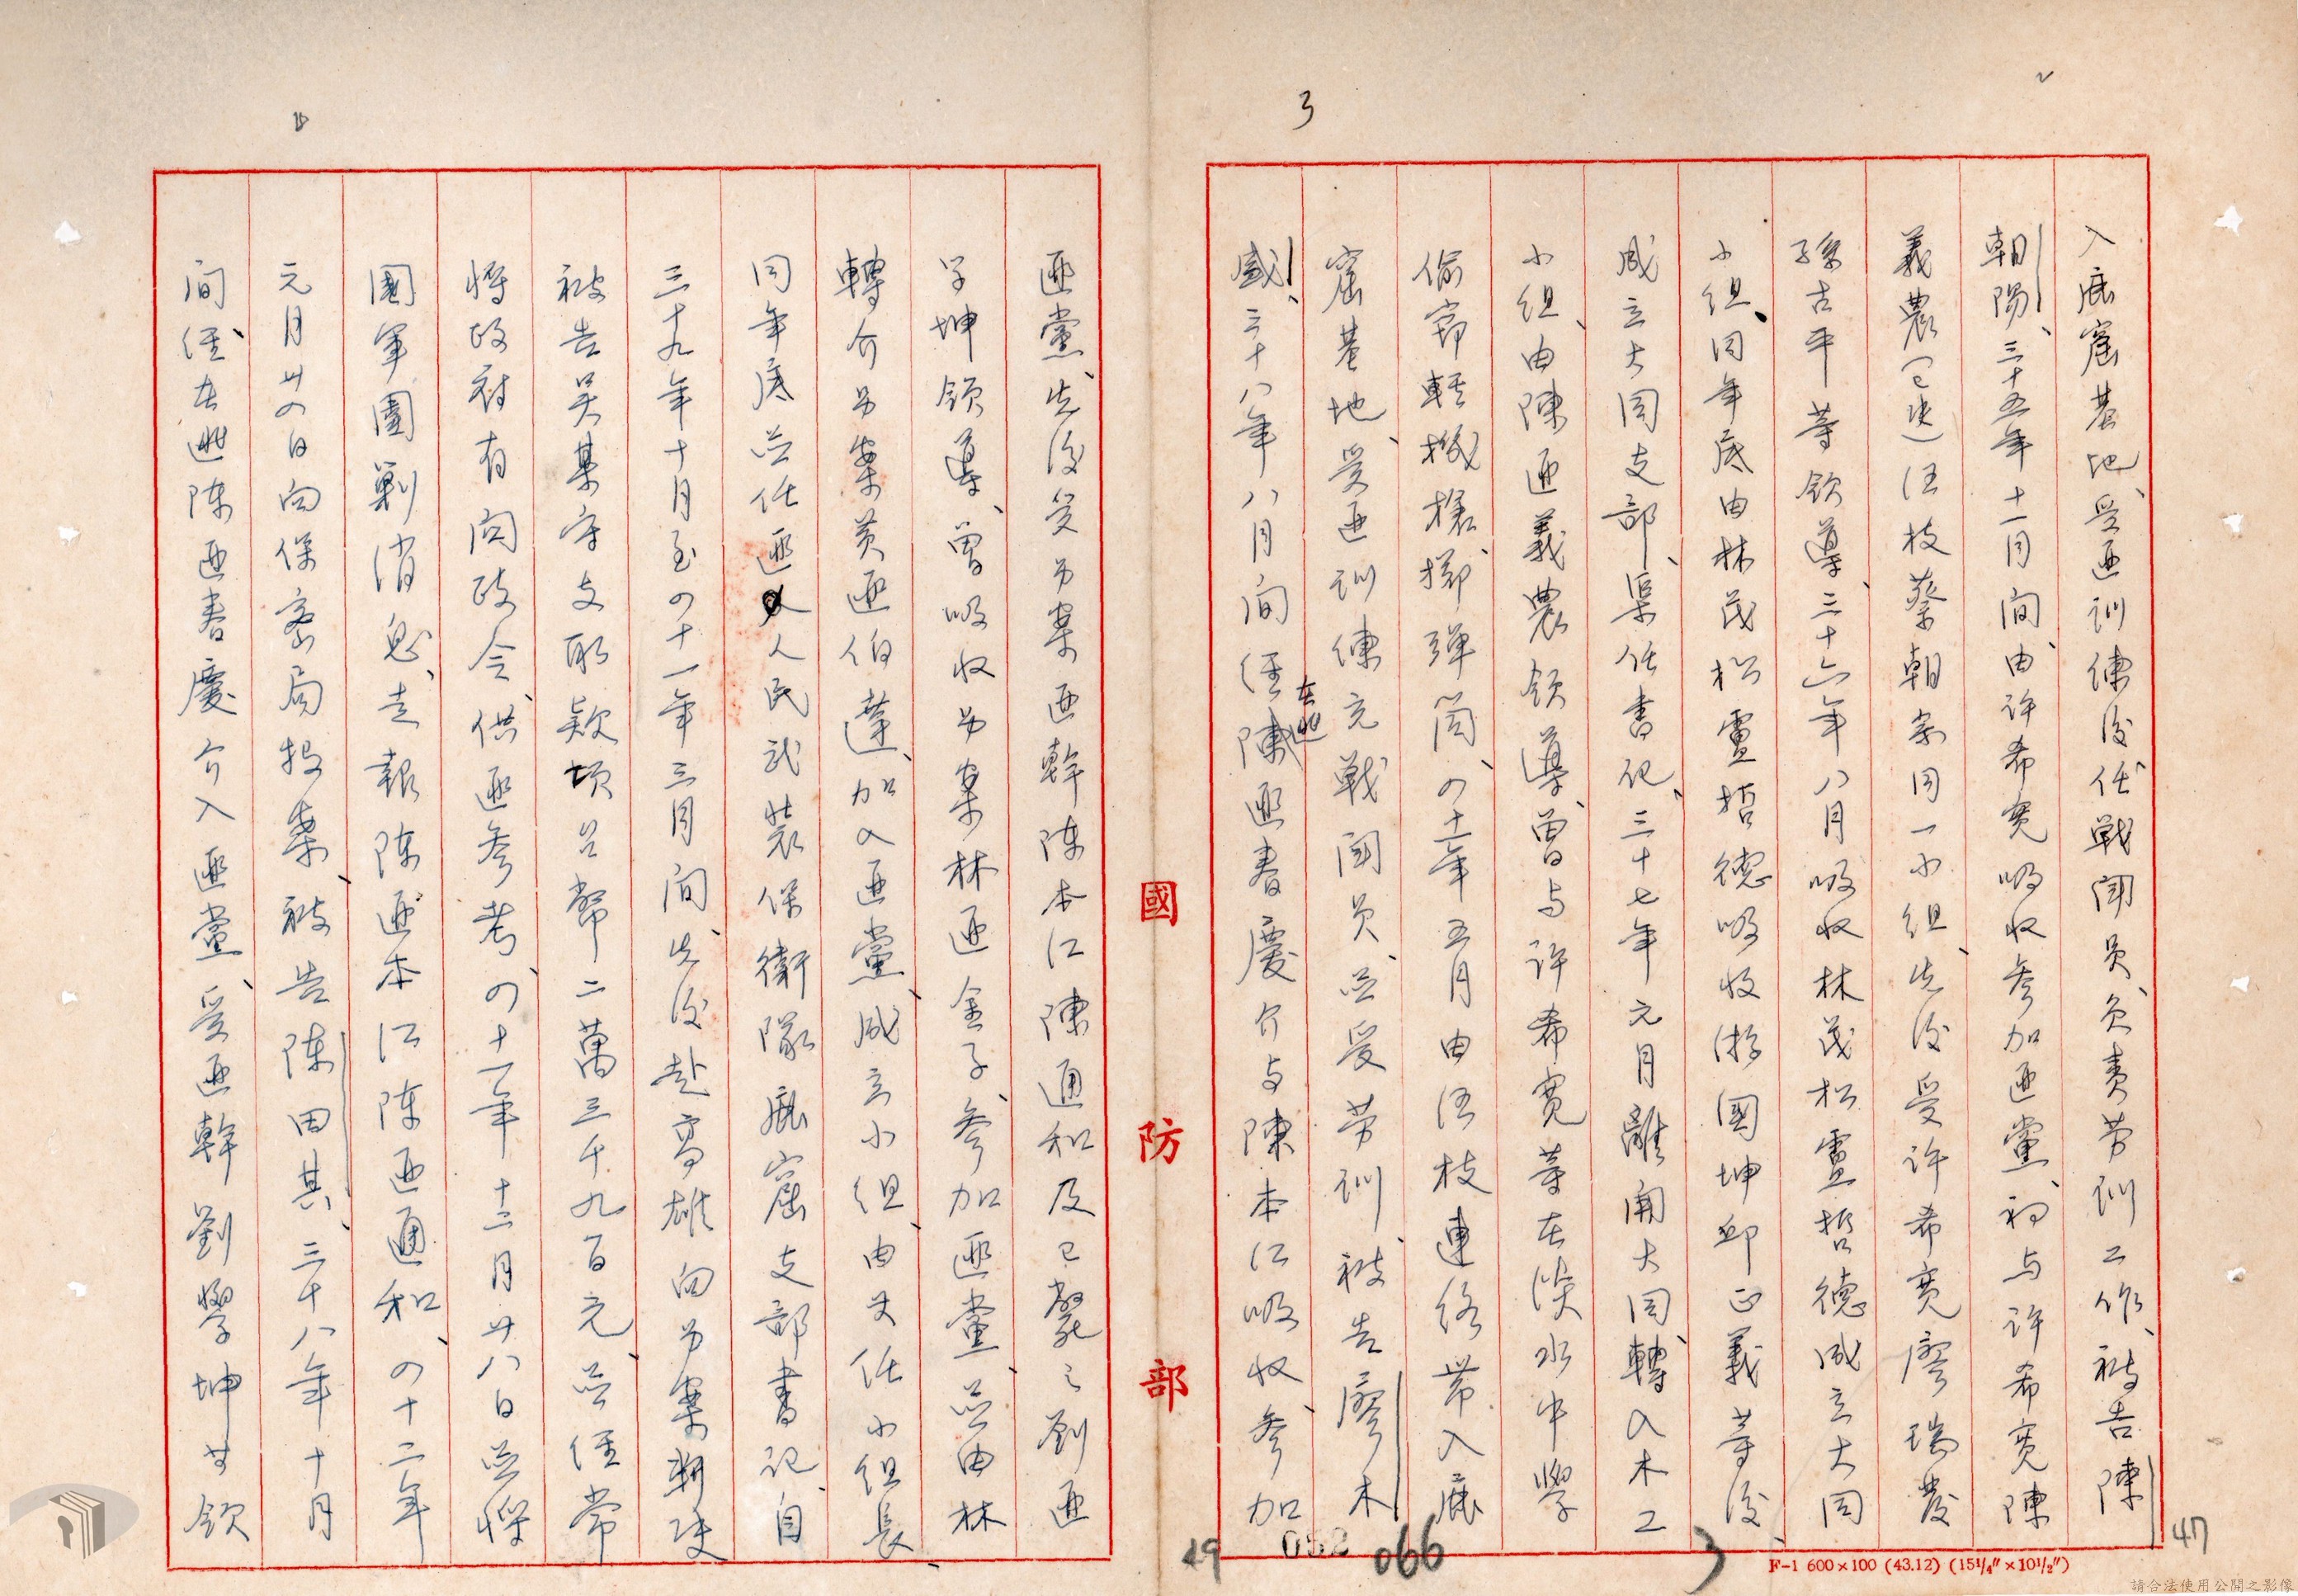 入鹿窟基地、受匪訓練後任戰鬥員、負責劳訓工作、被告陳
朝陽、三十五年十一月間、由許希寬吸收參加匪黨、初与許希寬陳
義農（已決）汪枝蔡朝宗同一小組、先後受許希寬廖瑞發
孫古平等領導、三十六年八月吸收林茂松盧哲德成立大同
小組、同年底由林茂松盧哲德吸收游國坤邱正義等後、
成立大同支部、渠任書記、三十七年元月離開大同、轉入木工
小組、由陳匪義農領導、曾与許希寬等在淡水中學
偷竊輕機槍擲彈筒、四十一年五月由汪枝連絡带入鹿
窟基地、受匪訓練充戰鬥員、並受劳訓、被告廖木
盛、三十八年八月間經在逃陳匪春慶介与陳本江吸收參加
匪黨、先後受另案匪幹陳本江陳通和及已斃之劉匪
学坤領導、曾吸收另案林匪金子、參加匪黨、並由林
轉介另案黃匪伯達、加入匪黨、成立小組、由其任小組長、
同年底並任匪人民武裝保衛隊鹿窟支部書記、自
三十九年十月至四十一年三月間、先後赴高雄向另案辦理
被告吳某守支取款項台幣二萬三千九百元、並經常
將政府有関政令、供匪參考、四十一年十二月廿八日並將
國軍圍剿消息、走報陳匪本江陳匪通和、四十二年
元月廿四日向保密局投案、被告陳田其、三十八年十月
間經在逃陳匪春慶介入匪黨、受匪幹劉學坤等領
國防部
2
3
4
47
49
066
3
F-1 600×100 (43.12) (15¼″×10½″)
請合法使用公開之影像